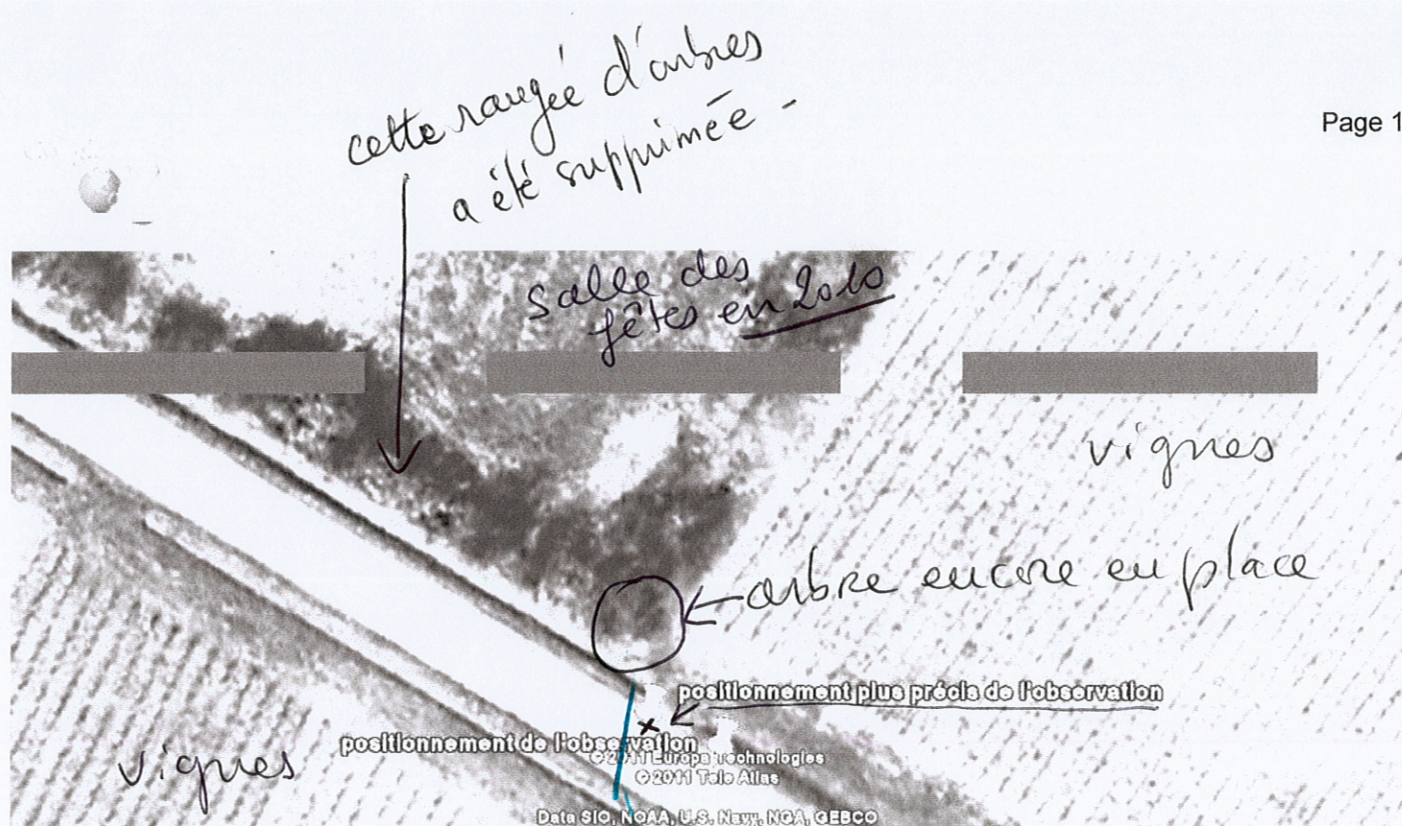 cette rangée d'arbres
a été supprimée -
Page 1
Salle des
fêtes en 2010
vignes
arbre encore en place
positionnement plus précis de l'observation
x
positionnement de l'observation
vignes
©2011 Europa Technologies
©2011 Tele Atlas
Data SIO, NOAA, U.S. Navy, NGA, GEBCO